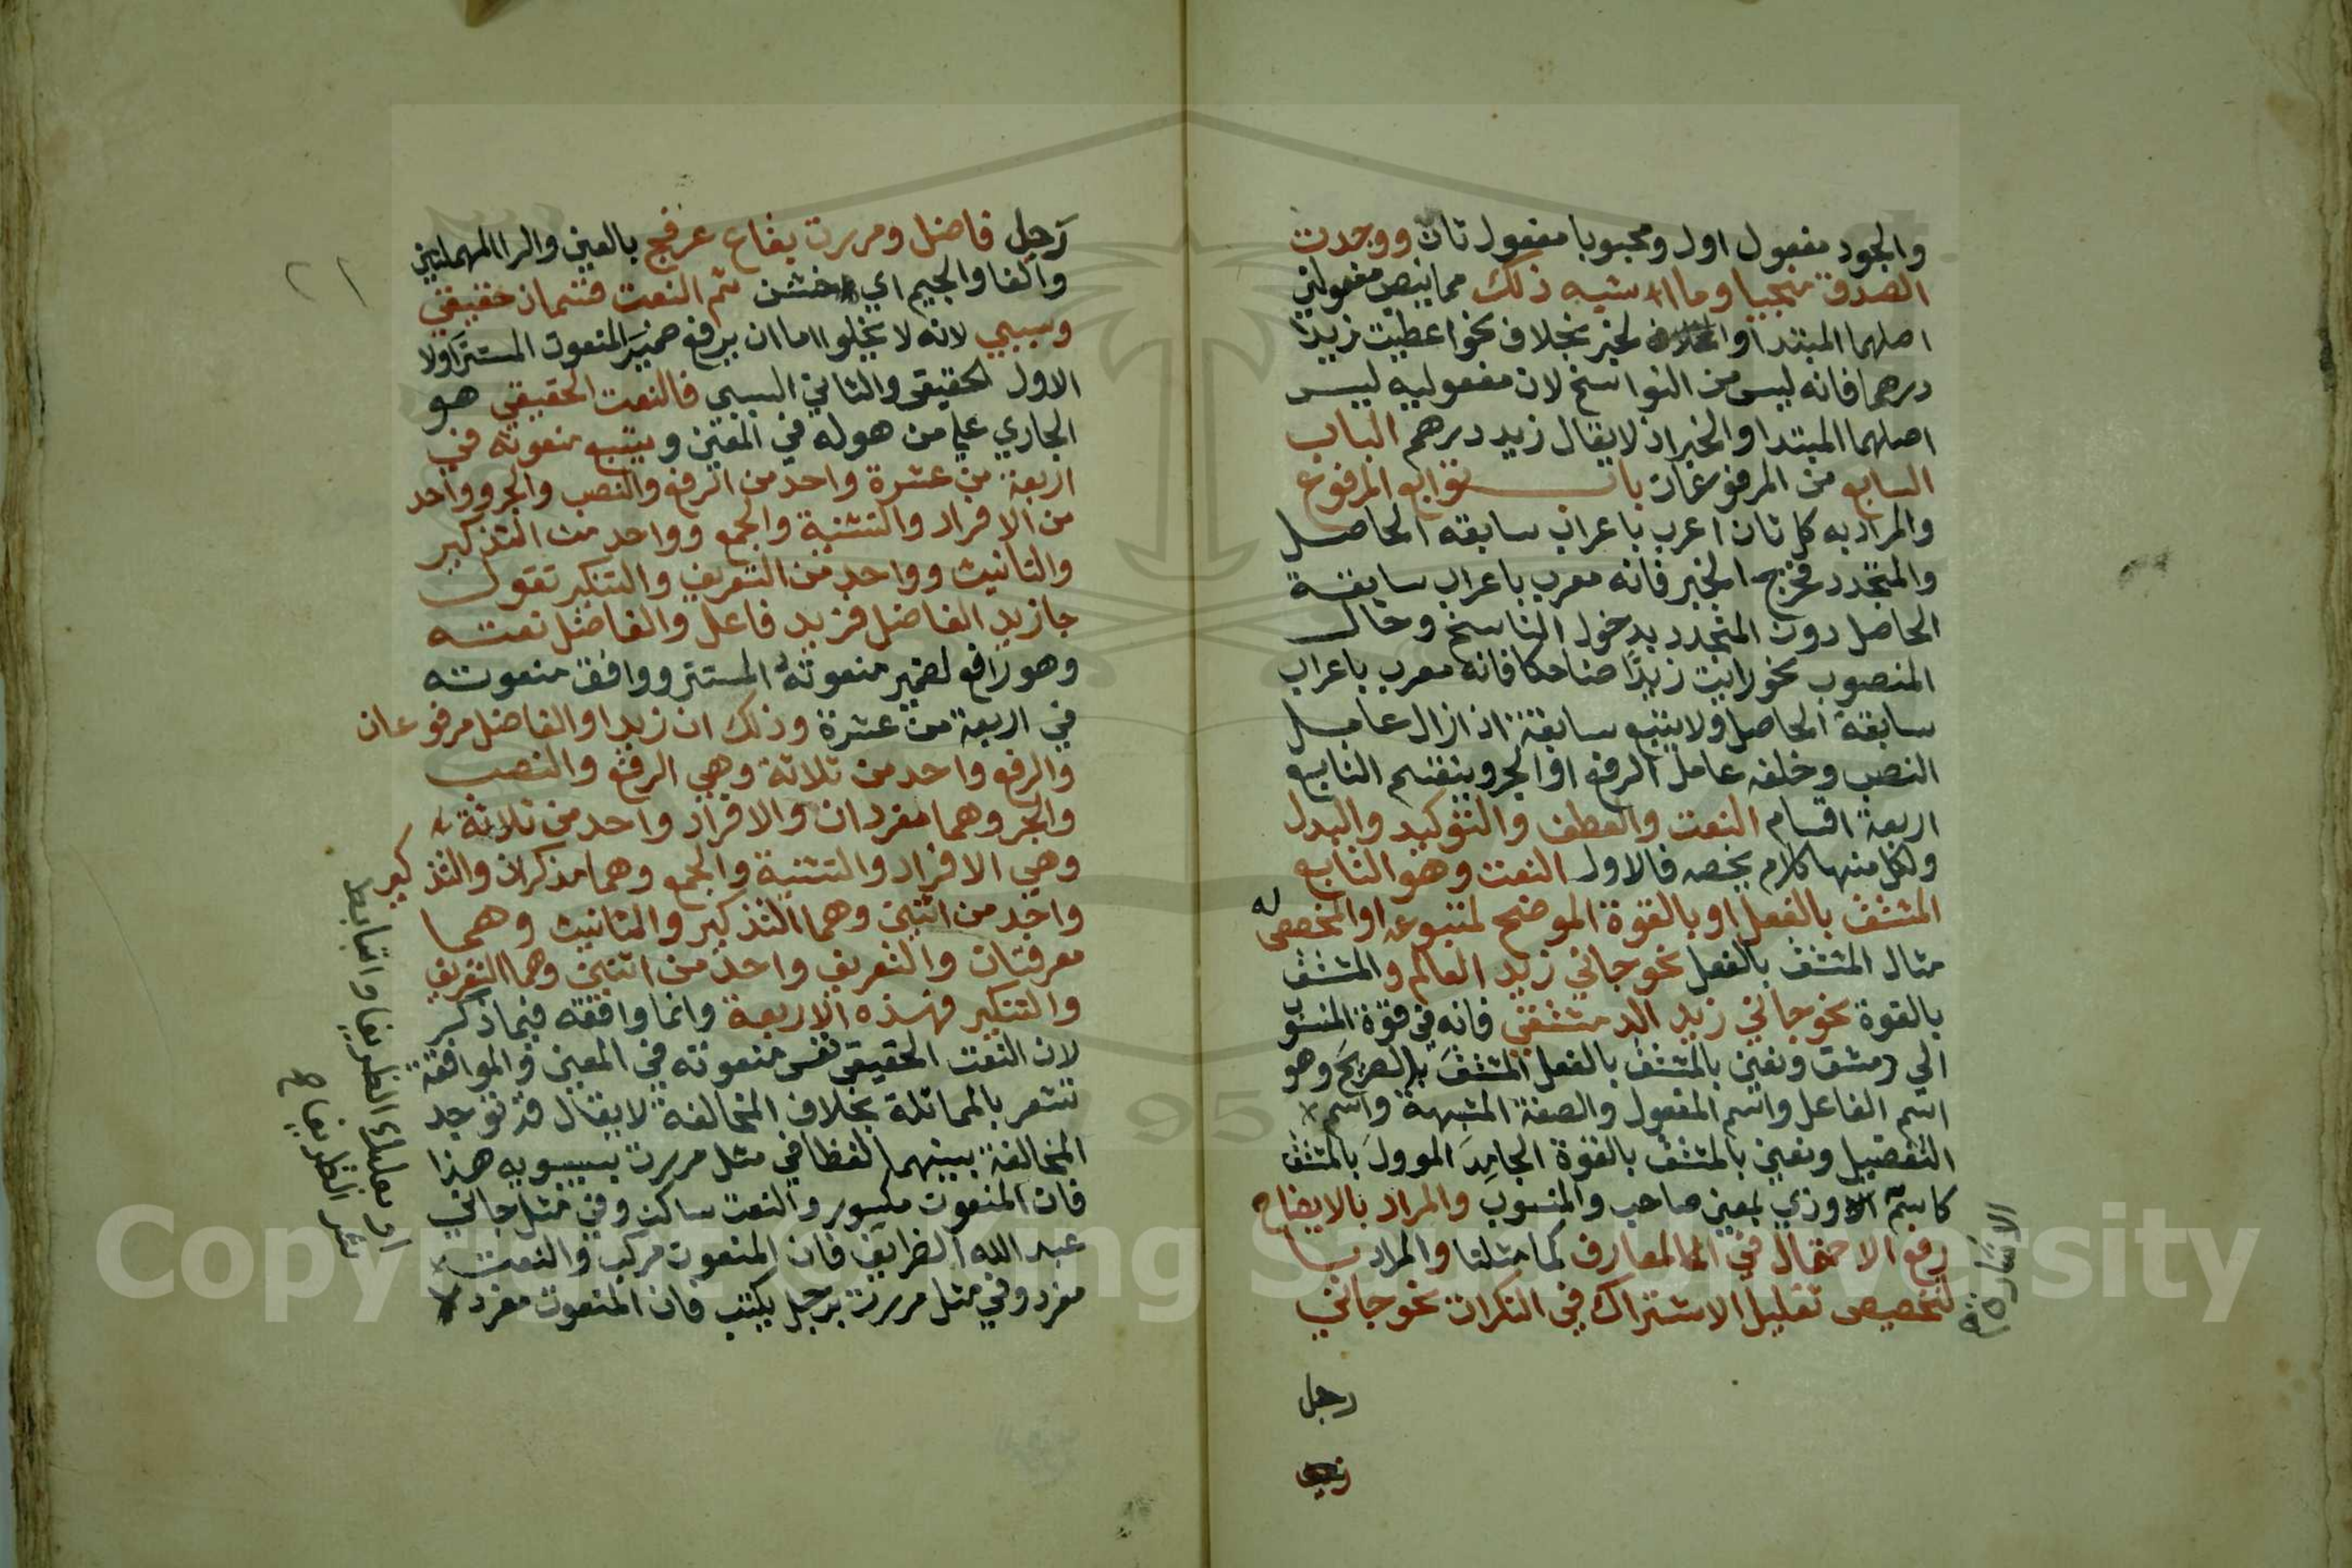 والجود مفعول اول ومحبوبا مفعول ثان ووجدت
الصدق منجيا وما اشبه ذلك مما ينصب مفعولين
اصلهما المبتدا والخبر بخلاف نحو اعطيت زيدا
درهما فانه ليس من النواسخ لان مفعوليه ليس
اصلهما المبتدا والخبر اذ لا يقال زيد درهم الباب
السابع من المرفوعات باب توابع المرفوع
والمراد به كل ثان اعرب باعراب سابقه الحاصل
والمتجدد فخرج الخبر فانه معرب باعراب سابقه
الحاصل دون المتجدد بدخول الناسخ وحال
المنصوب نحو رايت زيدا ضاحكا فانه معرب باعراب
سابقه الحاصل ولا يتبع سابقه اذا زال عامل
النصب وخلفه عامل الرفع او الجر وينقسم التابع
اربعة اقسام النعت والعطف والتوكيد والبدل
ولكل منها كلام يخصه فالاول النعت وهو التابع
المشتق بالفعل او بالقوة الموضح لمتبوعه او المخصص له
مثال المشتق بالفعل نحو جاني زيد العالم والمشتق
بالقوة نحو جاني زيد الدمشقي فانه في قوة المنسوب
الي دمشق ونعني بالمشتق بالفعل المشتق الصريح وهو
اسم الفاعل واسم المفعول والصفة المشبهة واسم
التفضيل ونعني بالمشتق بالقوة الجامد الموول بالمشتق
كاسم وذي بمعني صاحب والمنسوب والمراد بالايضاح
الاشارة
رفع الاحتمال في المعارف كما مثلنا والمراد با
لتخصيص تقليل الاشتراك في النكرات نحو جاني
رجل
رجل فاضل ومررت بقاع عرفج بالعين والرا المهملتين
والفا والجيم اي خشن ثم النعت قسمان حقيقي
وسببي لانه لا يخلوا اما ان يرفع ضمير المنعوت المستتر اولا
الاول الحقيقي والثاني السببي فالنعت الحقيقي هو
الجاري علي من هو له في المعني ويتبع منعوته في
اربعة من عشرة واحد من الرفع والنصب والجر وواحد
من الافراد والتثنية والجمع وواحد من التذكير
والتانيث وواحد من التعريف والتنكير تقول
جا زيد الفاضل فزيد فاعل والفاضل نعته
وهو رافع لضمير منعوته المستتر ووافق منعوته
في اربعة من عشرة وذلك ان زيدا والفاضل مرفوعان
والرفع واحد من ثلاثة وهي الرفع والنصب
والجر وهما مفردان والافراد واحد من ثلاثة
وهي الافراد والتثنية والجمع وهما مذكران والتذكير
واحد من اثنين وهما التذكير والتانيث وهما
معرفتان والتعريف واحد من اثنين وهما التعريف
والتنكير فهذه الاربعة وانما وافقه فيما ذكر
لان النعت الحقيقي نفس منعوته في المعني والموافقة
تشعر بالمماثلة بخلاف المخالفة لا يقال قد توجد
المخالفة بينهما لفظا في مثل مررت بسيبويه هذا
فان المنعوت مكسور والنعت ساكن وفي مثل جاني
عبد الله الظرايف فان المنعوت مركب والنعت
مفرد وفي مثل مررت برجل يكتب فان المنعوت مفرد
٢١
Copyright © King Saud University
1957